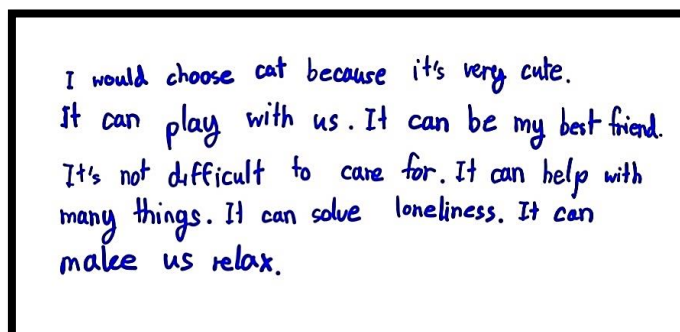 I would choose cat because it's very cute.
It can play with us. It can be my best friend.
It's not difficult to care for. It can help with
many things. It can solve loneliness. It can
make us relax.